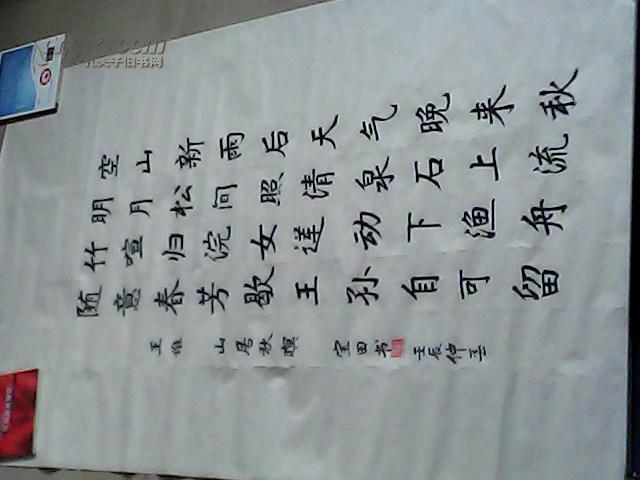 空山新雨后天气晚来秋
明月松间照清泉石上流
竹喧归浣女莲动下渔舟
随意春芳歇王孙自可留
王维 山居秋暝 宝田书 壬辰仲
孔夫子旧书网